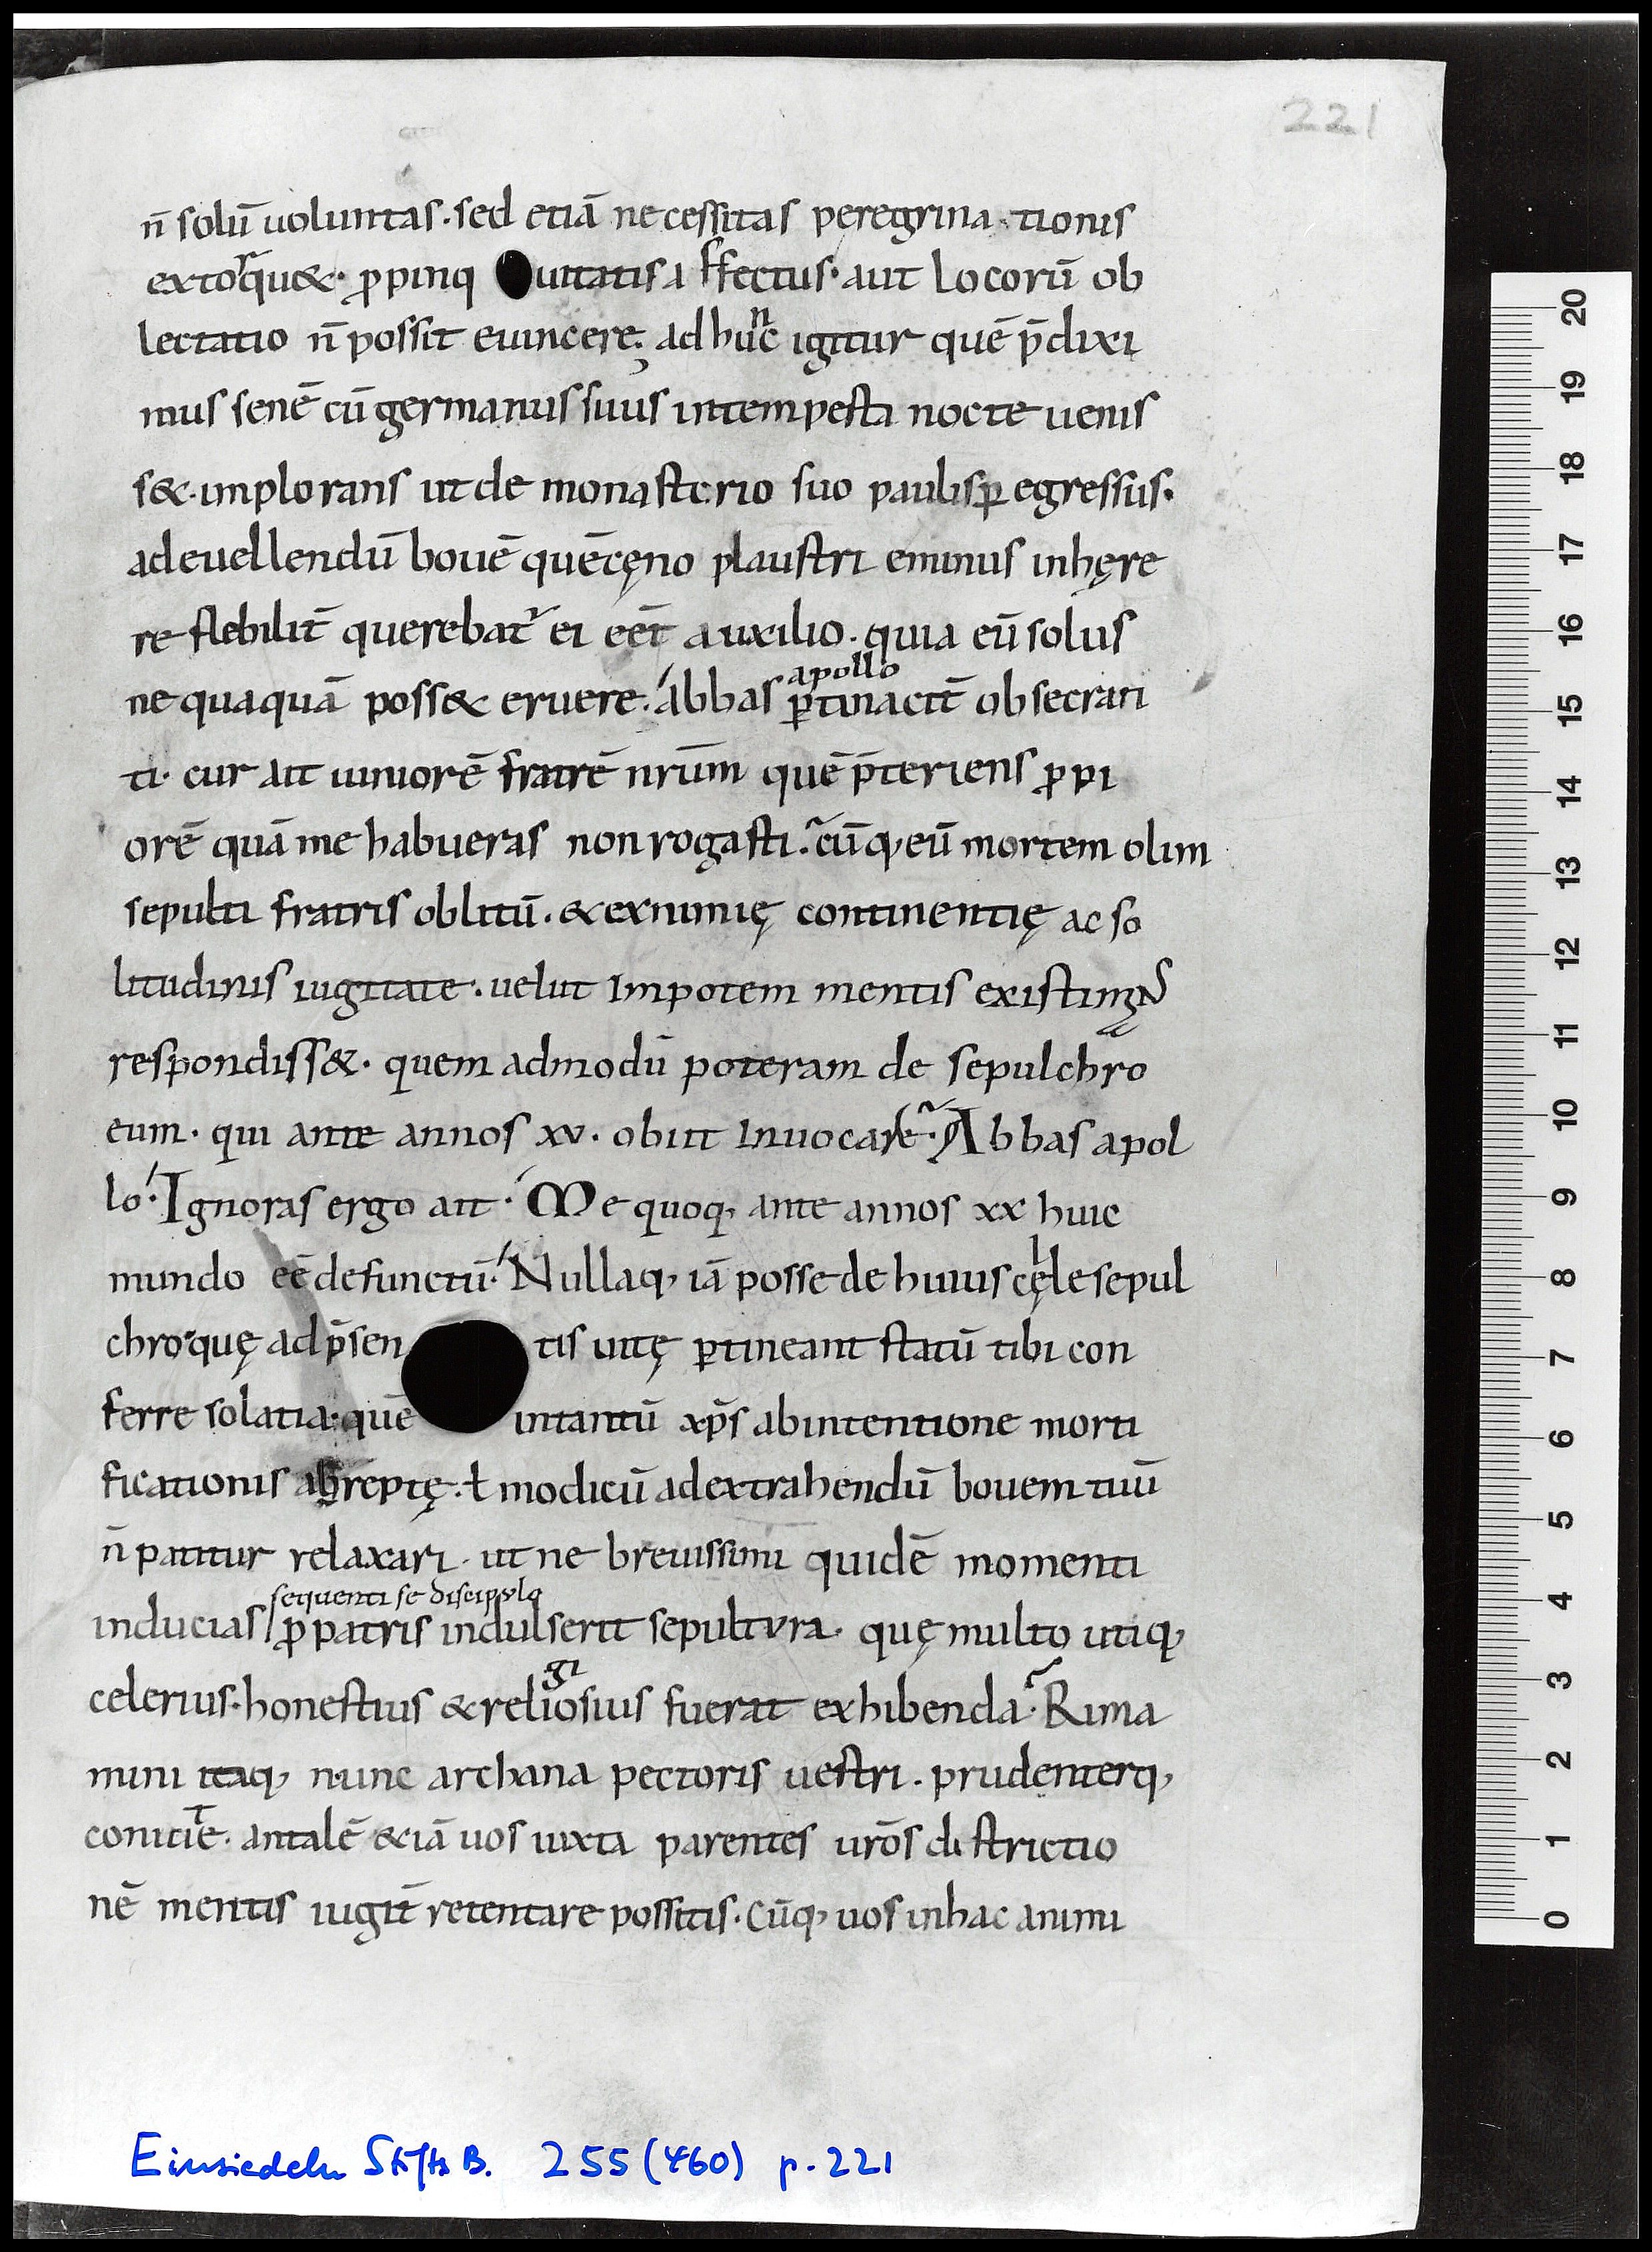 221
n̄ solū uoluntas. sed etiā necessitas peregrina tionis
extorqu&. ꝓpinq uitatis affectus. aut locorū ob
lectatio n̄ possit euincere; ad hunc igitur quē p̄dixi
mus senē cū germanus suus intempesta nocte uenis
s&. implorans ut de monasterio suo paulisꝑ egressus.
ad euellendū bouē quē cęno plaustri eminus inhęre
re flebilit̄ querebat᷑ ei eēt auxilio. quia eū solus
apollo
nequaquā poss& eruere. Abbas ꝑtinacit̄ obsecran
ti. cur ait iuniorē fratrē nr̄um quē p̄teriens ꝓpi
orē quā me habueras non rogasti. cūq; eū mortem olim
sepulti fratris oblitū. & ex nimię continentię ac so
litudinis iugitate. uelut impotem mentis
respondiss&. quem admodū poteram de sepulchro
eum. qui ante annos xv. obiit inuocare. Abbas apol
lo. Ignoras ergo ait. Me quoq; ante annos xx huic
mundo eē defunctū. Nullaq; iā posse de huius cęlle sepul
chro quę ad p̄sen tis uitę ꝑtineant statū tibi con
ferre solatia. quē intantū xp̄s ab intentione morti
ficationis abreptę. ł modicū ad extrahendū bouem tuū
n̄ patitur relaxari. ut ne breuissimi quidē momenti
sequenti se discipulo
inducias ꝓ patris indulserit sepultura. quę multo utiq;
celerius. honestius & religiosius fuerat exhibenda. Rima
mini itaq; nunc archana pectoris uestri. prudenterq;
coniicite. an talē &iā uos iuxta parentes ur̄os districtio
nē mentis iugit̄ retentare possitis. Cūq; uos in hac animi
Einsiedeln StiftsB. 255 (460) p. 221
20
19
18
17
16
15
14
13
12
11
10
9
8
7
6
5
4
3
2
1
0